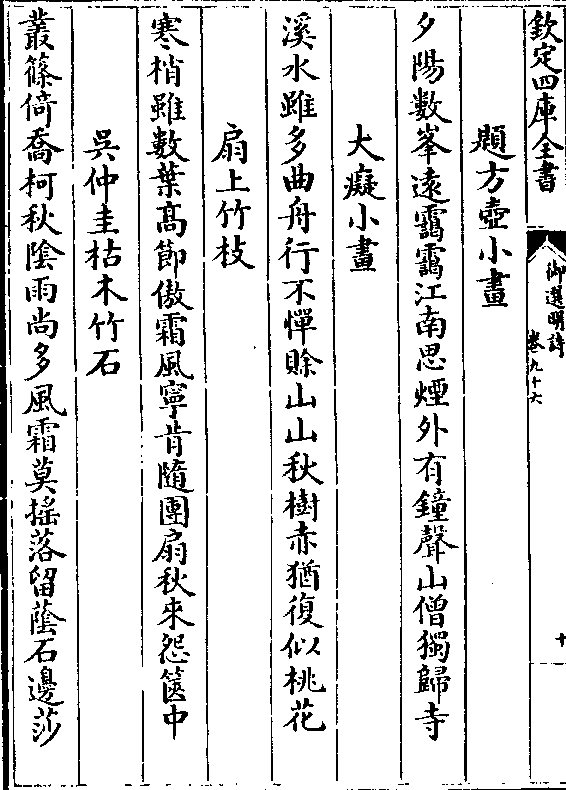 欽定四庫全書
御選明詩
卷九十六
十
題方壺小畫
夕陽數峯遠靄靄江南思煙外有鐘聲山僧獨歸寺
大癡小畫
溪水雖多曲舟行不憚賒山山秋樹赤猶復似桃花
扇上竹枝
寒梢雖數葉髙節傲霜風寧肯隨團扇秋來怨篋中
吳仲圭枯木竹石
叢篠倚喬柯秋陰雨尚多風霜莫搖落留蔭石邊莎